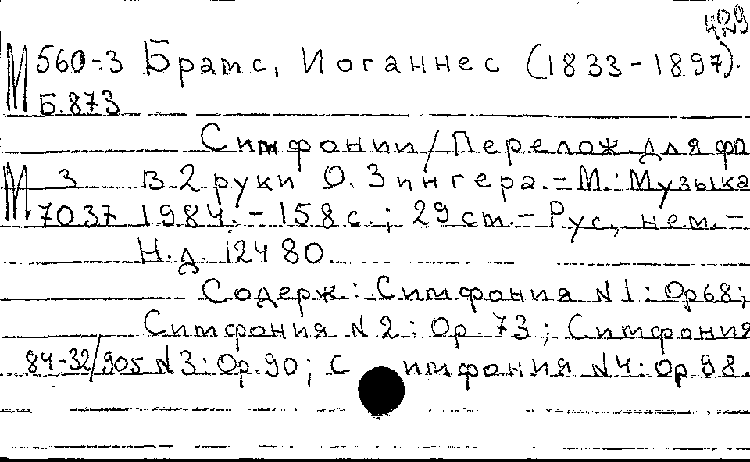 429
М 560-3 Брамс, Иоганнес (1833-1897).
Б.873
Симфонии/Перелож. для фп
М 3 в 2 руки О. Зингера.-М.: Музыка
7037 1984.-158 с.; 29 см.-Рус, нем.-
Н.д. 12480.
Содерж: Симфония N1: Ор68;
Симфония N2: Ор.73; Симфония
84-32/905 N3: Ор.90; Симфония N4: Ор98.